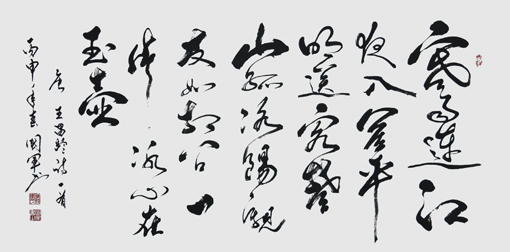 寒雨連江
夜入吳平
明送客楚
山孤洛陽親
友如相問一
片冰心在
玉壺
唐王昌齡詩一首
丙申年春國軍書